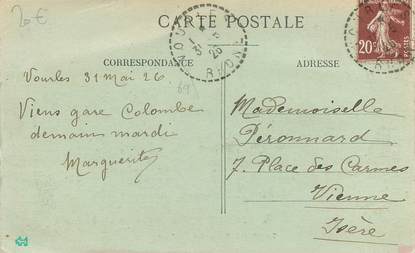 20€
CARTE POSTALE
CORRESPONDANCE
ADRESSE
RHONE
20c
Vourles 31 Mai 26
69
Viens gare Colombe
demain mardi
Marguerite
Mademoiselle
Péronnard
7. Place des Carmes
Vienne
Isère